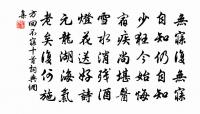 無寐復無寐
自知仍自知
少狂今始悔
宿疾尚堪醫
燈
雪送好詩
元龍湖海氣
老矣復何施
方回不寐十首
集